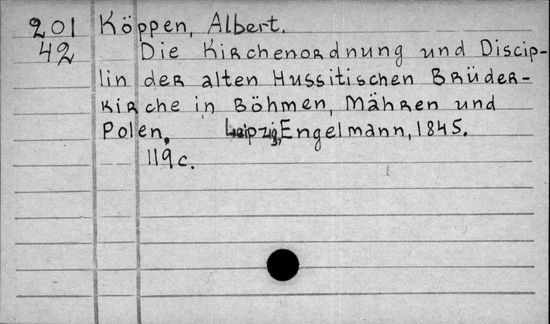 201 Köppen, Albert.
42 Die Kirchenordnung und Discip-
lin der alten Hussitischen Brüder-
kirche in Böhmen, Mähren und
Polen. Leipzig, Engelmann, 1845.
119c.